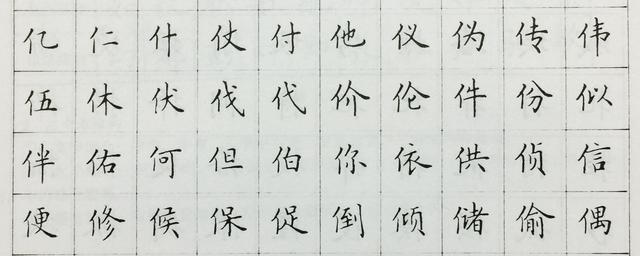 亿仁什仗付他仪伪传伟
伍休伏伐代价伦件份似
伴佑何但伯你依供侦信
便修候保促倒倾储偷偶